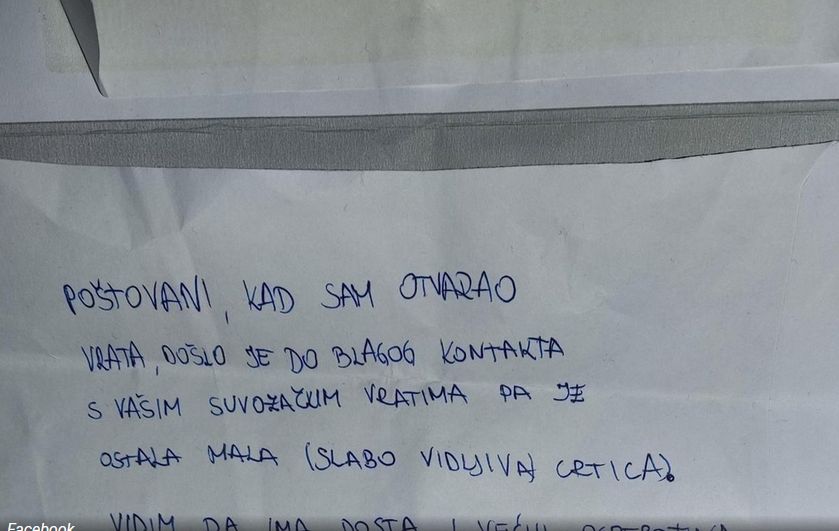 POŠTOVANI, KAD SAM OTVARAO
VRATA, DOŠLO JE DO BLAGOG KONTAKTA
S VAŠIM SUVOZAČKIM VRATIMA PA JE
OSTALA MALA (SLABO VIDLJIVA) CRTICA).
VIDIM DA IMA DOSTA I VEĆIH
Facebook